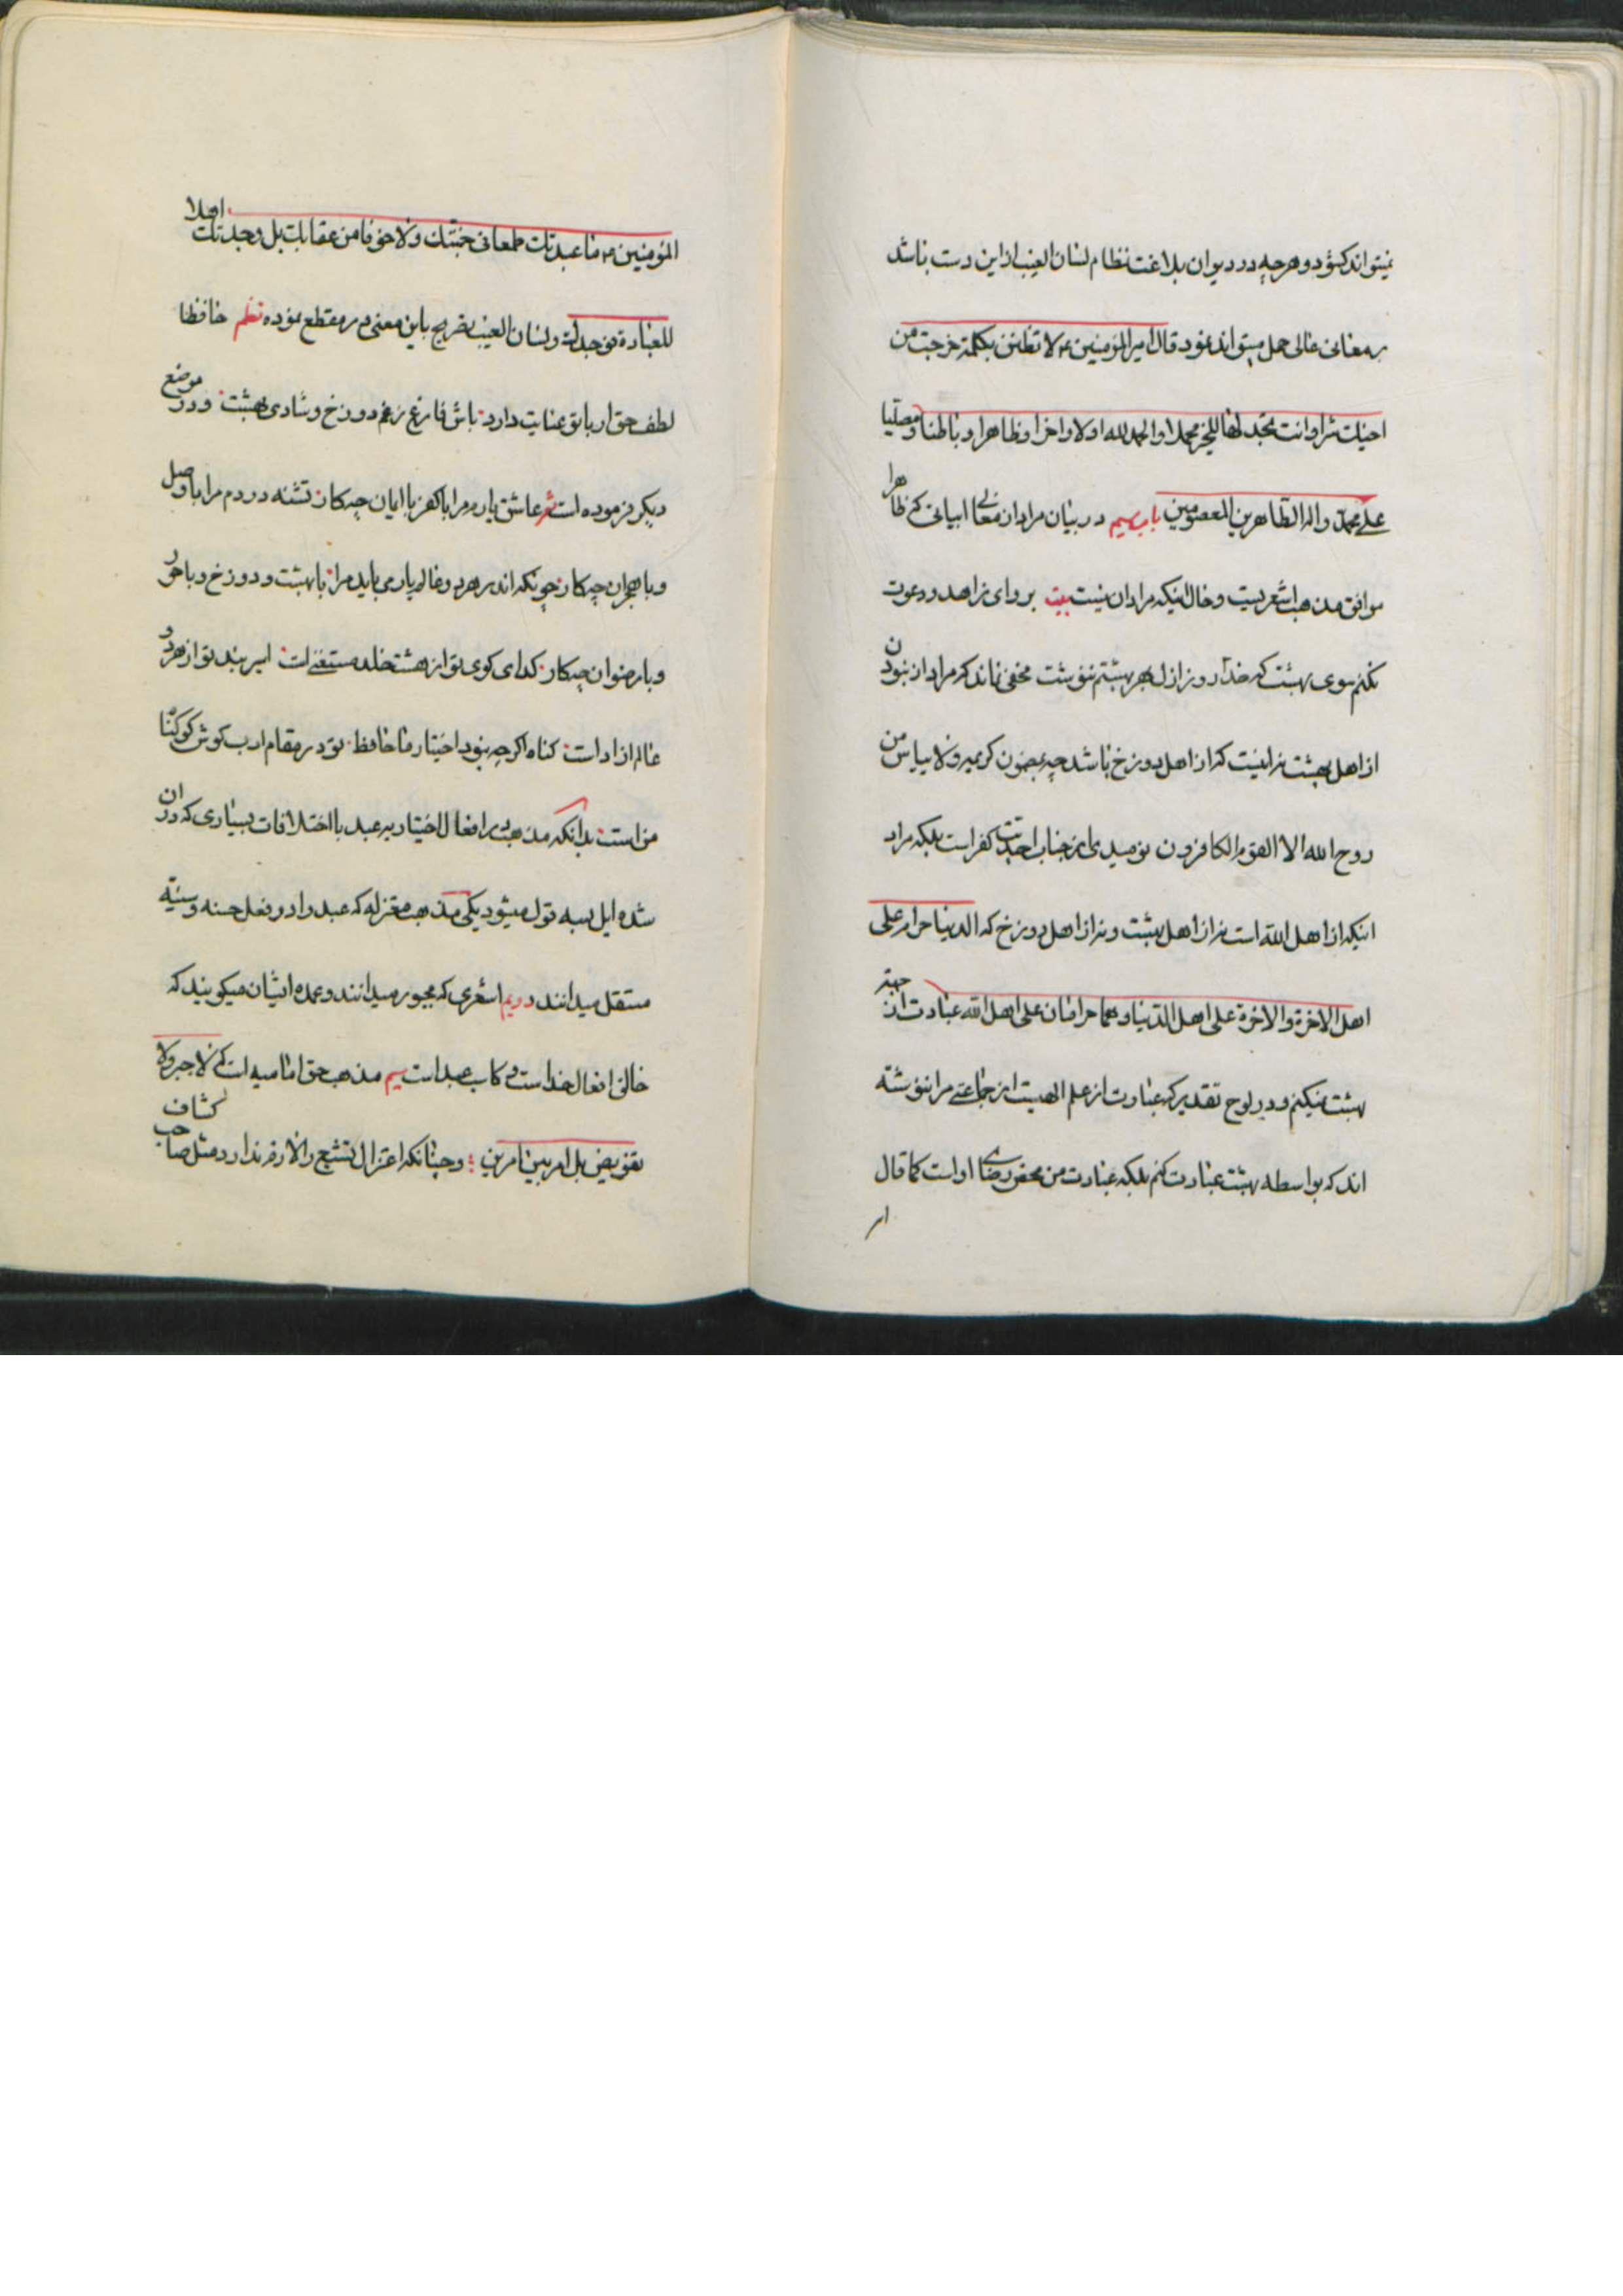 نمیتواند کشود و هرچه در دیوان بلاغت نظام لسان الغیب ازین دست باشد
بر معانی عالی حمل میتواند نمود قال امیر المؤمنین ع لا تظنن بکلمة خرجت من
اخیک شرا وانت تجد لها للخیر محملا والحمدلله اولا واخرا وظاهرا وباطنا ومصلیا
علی محمد واله الطاهرین المعصومین باب سیم در بیان مراد از معانی ابیاتی که ظاهرا
موافق مذهب اشعریست وحال اینکه مراد ان نیست بیت برو ای زاهد ودعوت
نکنم سوی بهشت که خدا روز ازل بهر بهشتم ننوشت مخفی نماند که مراد از نبودن
از اهل بهشت نه اینست که از اهل دوزخ باشد چه بمضون کریمه ولا ییاس من
روح الله الا القوم الکافرون نومیدی از جناب احدیت کفر است بلکه مراد
اینکه از اهل الله است نه از اهل بهشت و نه از اهل دوزخ که الدنیا حرام علی
اهل الاخرة والاخرة علی اهل الدنیا وهما حرامان علی اهل الله عبادت از جهة
بهشت نمیکنم و در لوح تقدیر که عبارت از علم الهیست از جماعتی مرا ننوشته
اند که بواسطه بهشت عبادت کنم بلکه عبادت من محض رضای اوست کما قال
امیر
المؤمنین ع ما عبدتک طمعا فی جنتک ولا خوفا من عقابک بل وجدتک اهلا
للعبادة فوجدک ولسان الغیب تصریح باین معنی در مقطع نموده نظم حافظا
لطف حق ار با تو عنایت دارد باش فارغ ز غم دوزخ وشادی بهشت و در موضع
دیگر فرموده است شعر عاشق یارم مرا با کفر با ایمان چکار تشنه دردم مرا با وصل
و با هجران چکار چونکه اندر هر دو عالم یار می باید مرا با بهشت و دوزخ و با حور
و با رضوان چکار کدای کوی تو از هشت خلد مستغنی است اسیر بند تو از هر دو
عالم ازاد است کناه اکرچه نبود اختیار ما حافظ تو در مقام ادب کوش کو کناه
من است بدانکه مذهب در افعال اختیاریه عبد با اختلافات بسیاری که در ان
شده ایل بسه قول میشود یکی مذهب معتزله که عبد را در فعل حسنه وسیئه
مستقل میدانند دویم اشعری که مجبور میدانند وعمده ایشان میکویند که
خالق افعال خداست و کاسب عبد است سیم مذهب حق امامیه است که لا جبر ولا
تفویض بل امر بین امرین وچنانکه اعتزال تشیع را لازم ندارد مثل صاحب کشاف